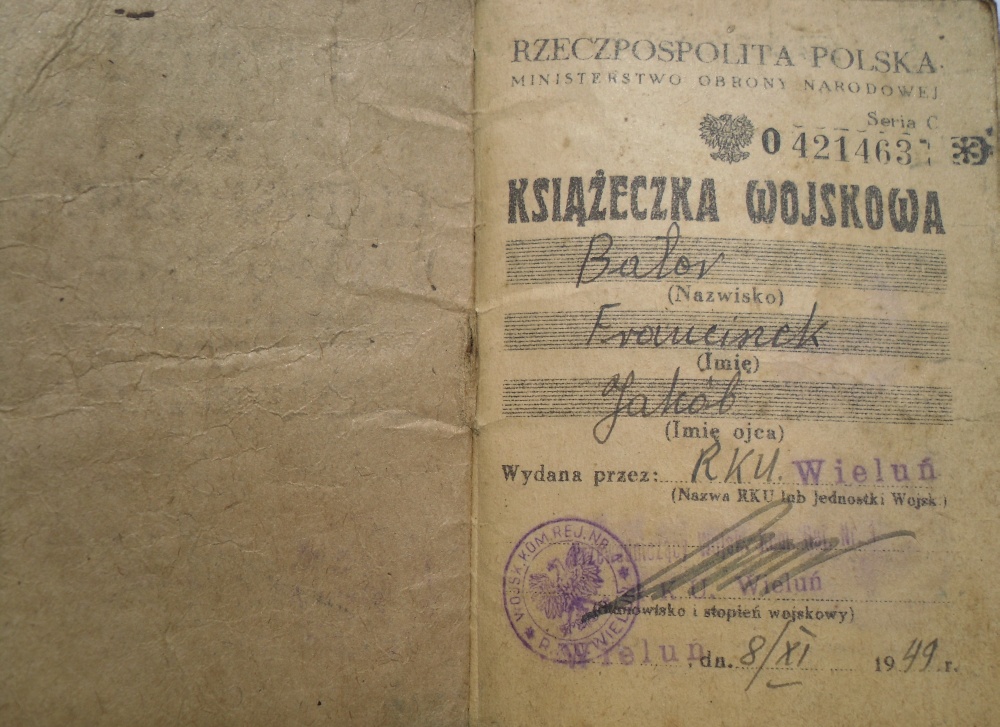 RZECZPOSPOLITA POLSKA
MINISTERSTWO OBRONY NARODOWEJ
Seria C
0 421463
KSIĄŻECZKA WOJSKOWA
Bator
(Nazwisko)
Franciszek
(Imię)
Jakób
(Imię ojca)
Wydana przez: RKU. Wieluń
(Nazwa RKU lub Jednostki Wojsk.)
WOJSK. KOM. REJ. NR. 1
R.K.U. Wieluń
(Stanowisko i stopień wojskowy)
Wieluń, dn. 8/XI 1949 r.